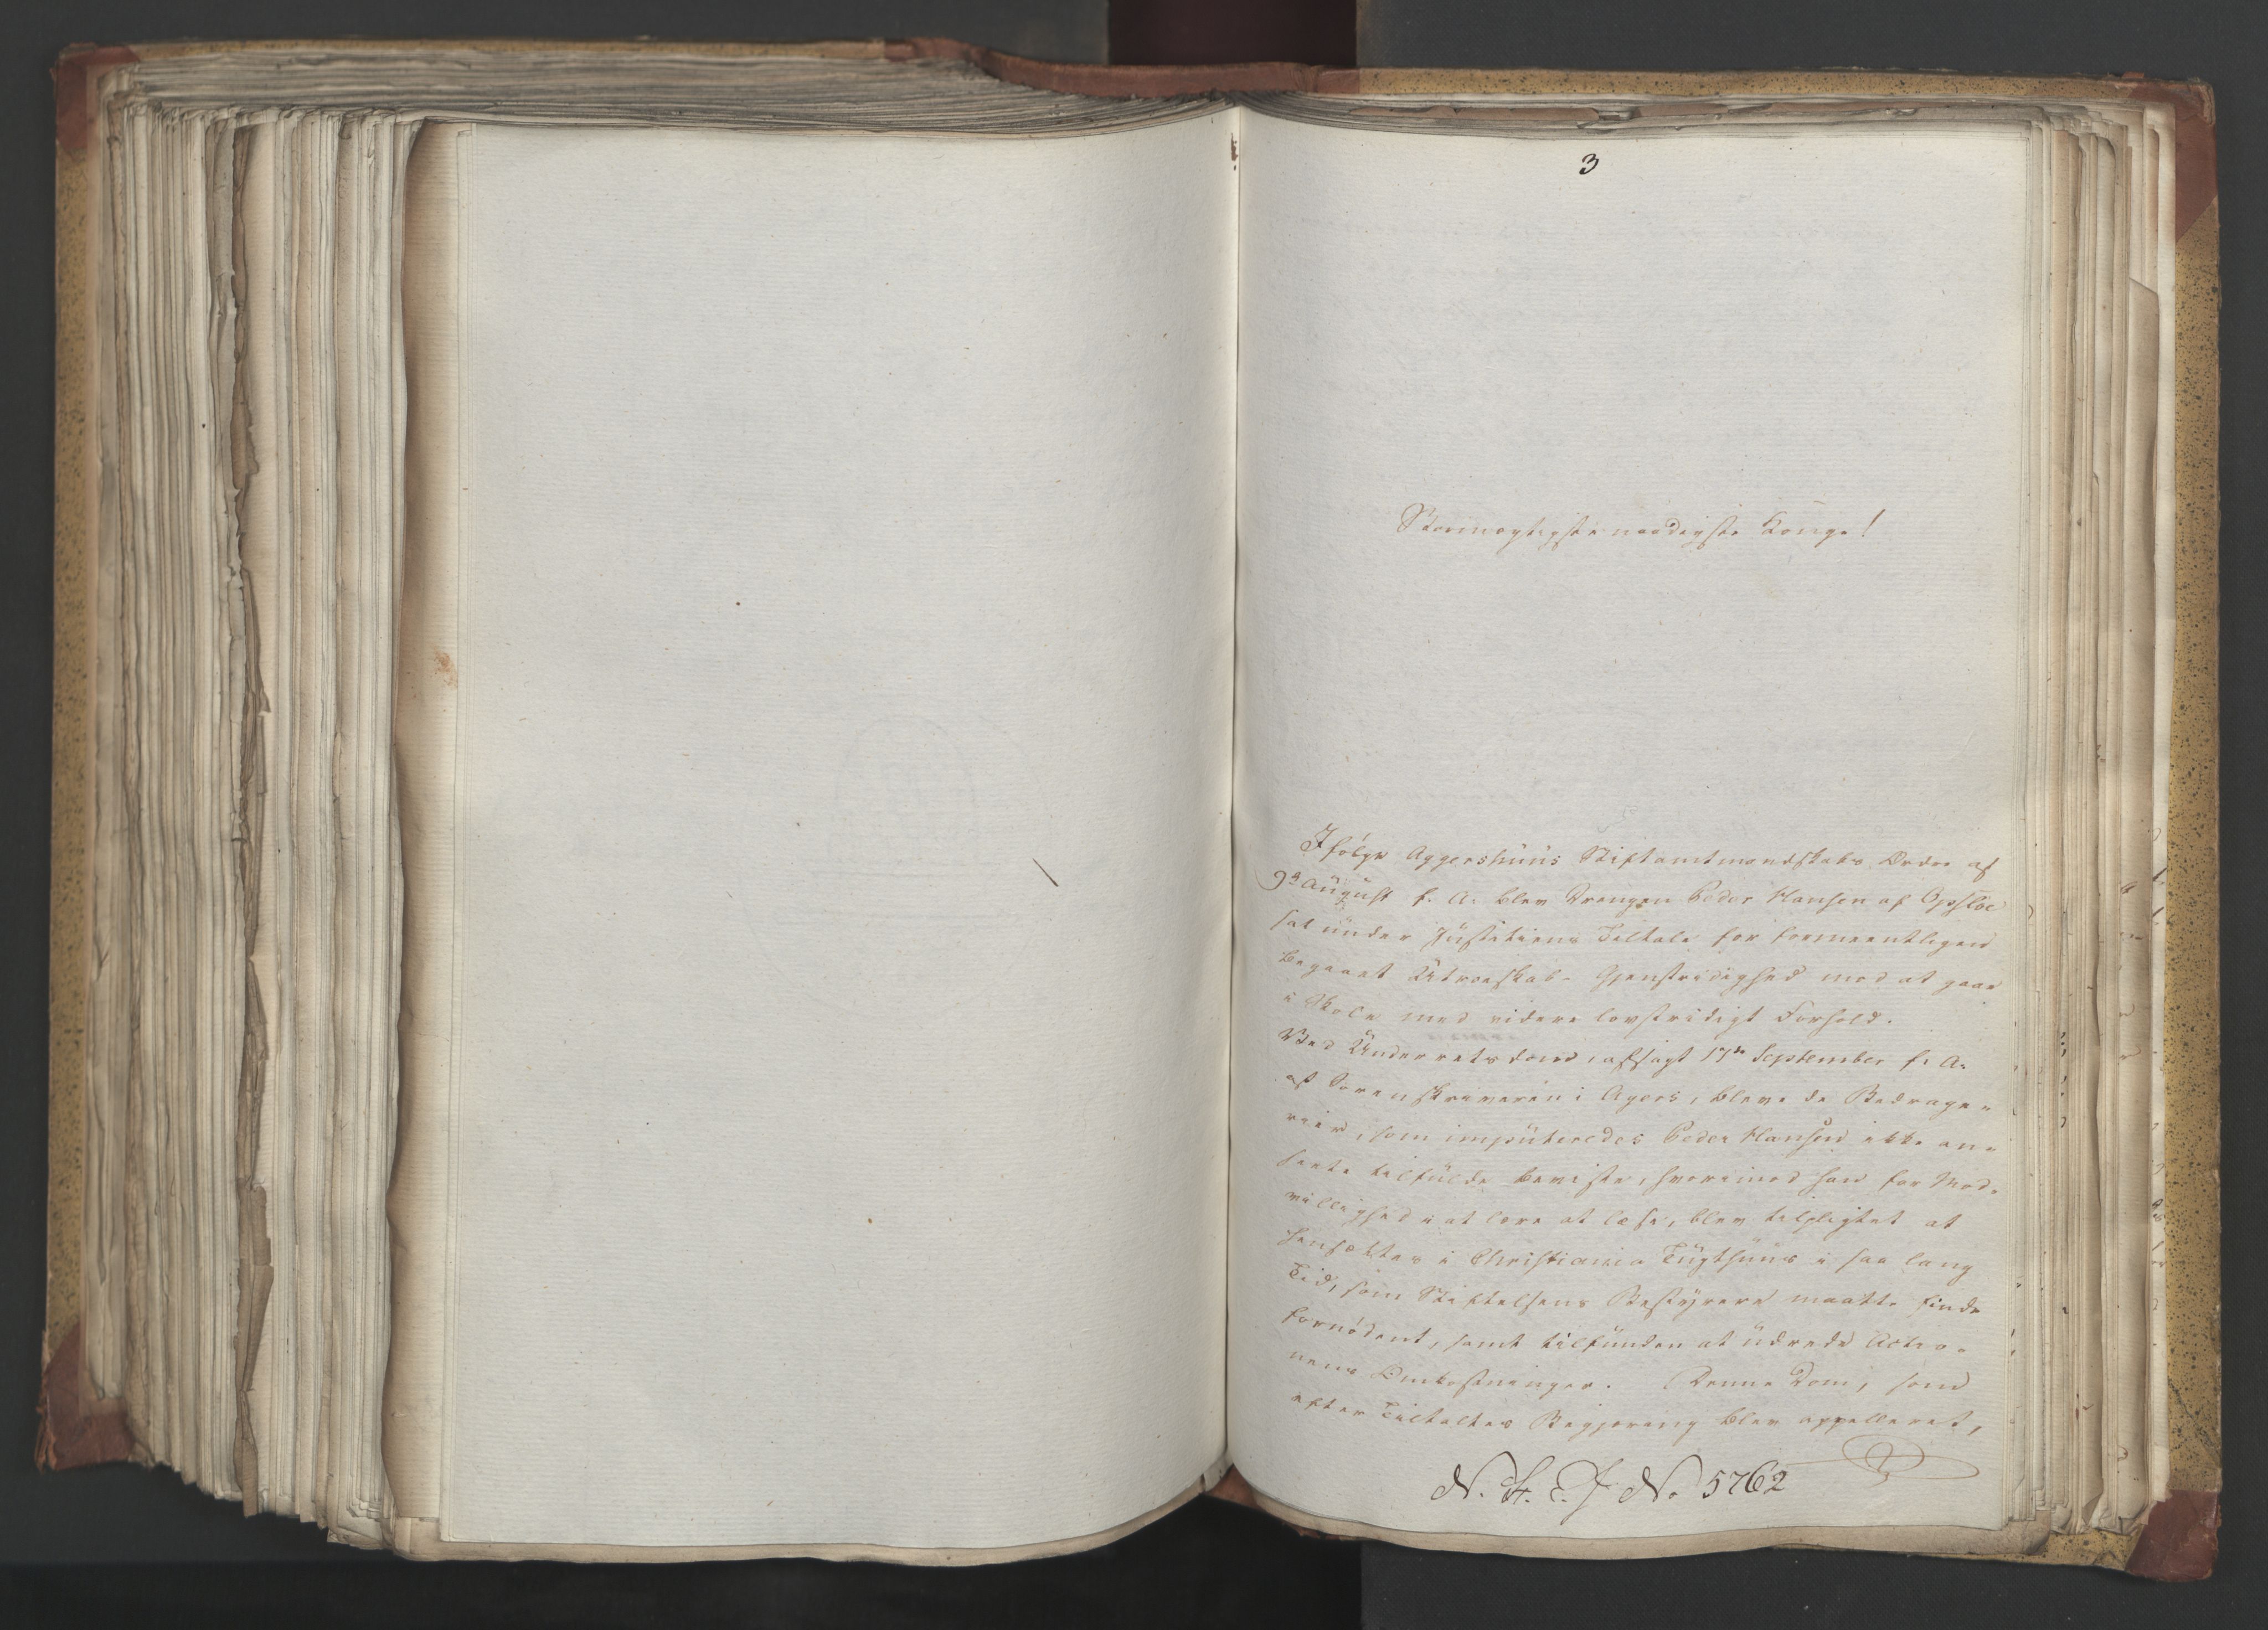 3
Stormægtigste naadigste Konge!
Ifølge Aggershuus Stiftamtmandskabs Ordre af
9de August f. A. blev Drengen Peder Hansen af Opsloe
sat under Justitiens Tiltale for formeentligen
begaaet Utroeskab, Gjenstridighed mod at gaae
i Skole med videre lovstridigt Forhold.
Ved Underretsdom, afsagt 17de September f. A.
af Sorenskriveren i Agers, bleve de Bedrage-
rier, som imputeredes Peder Hansen ikke an-
seete tilfulde beviste, hvorimod han for Mod-
villighed i at lære at læse, blev tilpligtet at
hensættes i Christiania Tugthuus i saa lang
Tid, som Stiftelsens Bestyrere maatte finde
fornødent, samt tilfunden at udrede Actio-
nens Omkostninger. Denne Dom, som
efter Tiltaltes Begjæring blev appelleret,
N. 5762